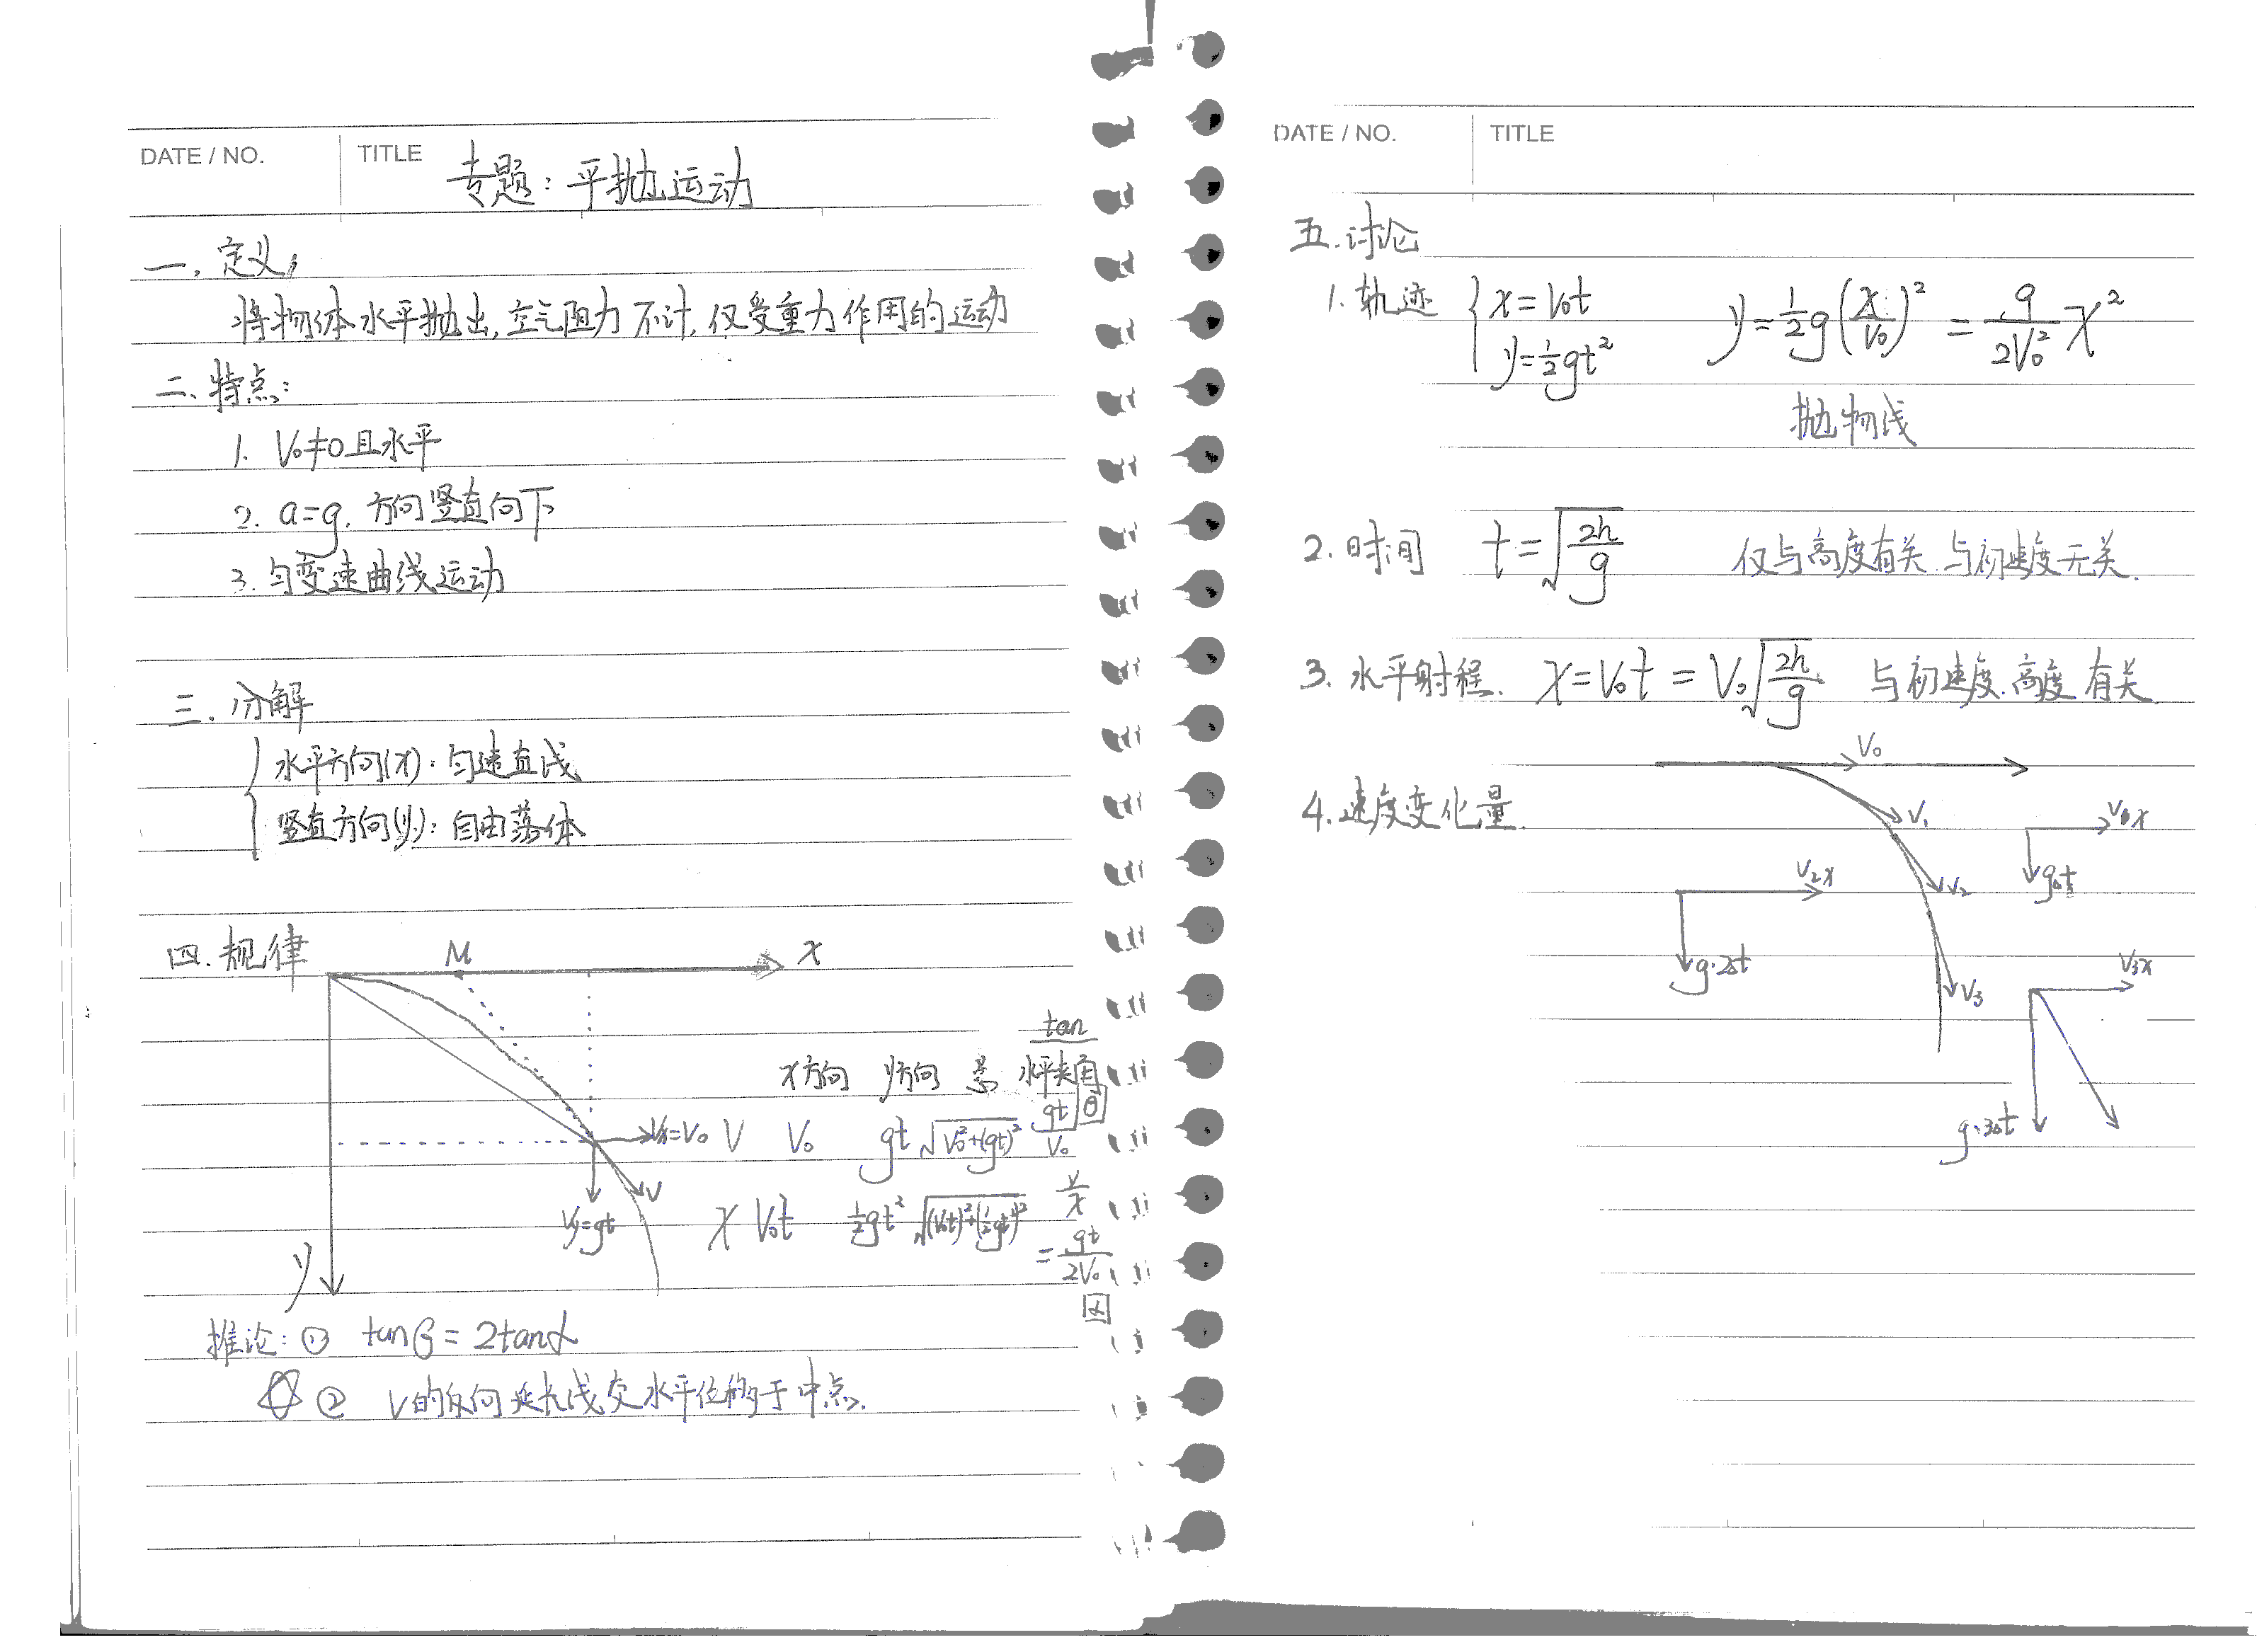 DATE / NO. TITLE 专题：平抛运动
一、定义：
将物体水平抛出，空气阻力不计，仅受重力作用的运动
二、特点：
1. V₀≠0且水平
2. a=g，方向竖直向下
3. 匀变速曲线运动
三、分解
水平方向(x)：匀速直线
竖直方向(y)：自由落体
四. 规律 M x
tan
x方向 y方向 水平夹角
Vx=V₀ V V₀ gt √(V₀²+(gt)²) gt/V₀ θ
V
Vy=gt x V₀t ½gt² √((V₀t)²+(½gt²)²) y/x
= gt/2V₀
y α
推论：① tanθ = 2tanα
② V的反向延长线交水平位移于中点.
DATE / NO. TITLE
五. 讨论
1. 轨迹 { x=V₀t y=½gt² y=½g(x/V₀)² = g/2V₀² x²
抛物线
2. 时间 t=√(2h/g) 仅与高度有关，与初速度无关.
3. 水平射程. x=V₀t = V₀√(2h/g) 与初速度.高度有关
V₀
4. 速度变化量.
V₁ x
gΔt
V₂x V₂
g·2Δt
V₃ V₃x
g·3Δt